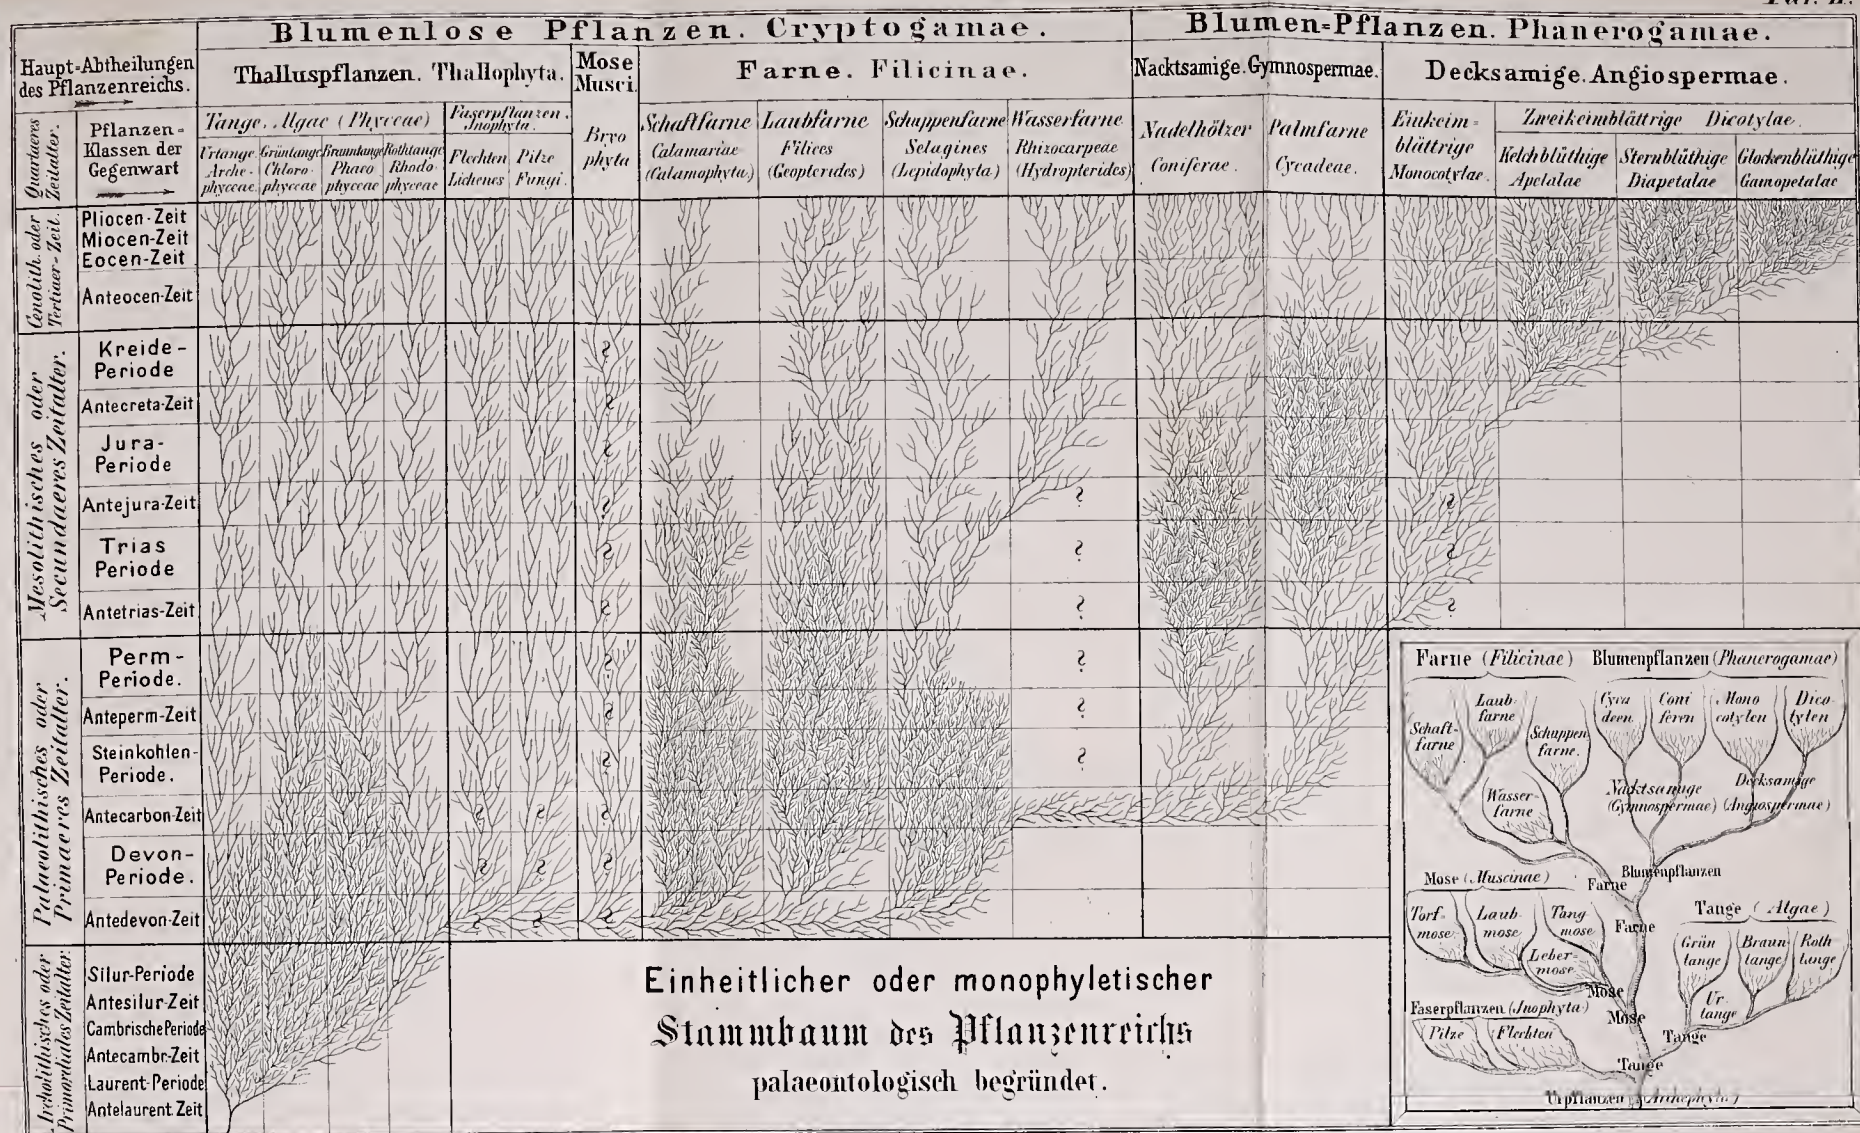 Taf. II.
Blumenlose Pflanzen. Cryptogamae.
Blumen=Pflanzen. Phanerogamae.
Haupt=Abtheilungen
des Pflanzenreichs.
Thalluspflanzen. Thallophyta.
Mose
Musci.
Farne. Filicinae.
Nacktsamige. Gymnospermae.
Decksamige. Angiospermae.
Quartaeres
Zeitalter.
Pflanzen=
Klassen der
Gegenwart
Tange. Algae (Phyceae)
Faserpflanzen.
Inophyta.
Urtange
Arche-
phyceae.
Grüntange
Chloro-
phyceae
Brauntange
Phaeo
phyceae
Rothtange
Rhodo-
phyceae
Flechten
Lichenes
Pilze
Fungi.
Bryo
phyta
Schaftfarne
Calamariae
(Calamophyta)
Laubfarne
Filices
(Geopterides)
Schuppenfarne
Selagines
(Lepidophyta)
Wasserfarne
Rhizocarpeae
(Hydropterides)
Nadelhölzer
Coniferae.
Palmfarne
Cycadeae.
Einkeim=
blättrige
Monocotylae.
Zweikeimblättrige Dicotylae.
Kelchblüthige
Apetalae
Sternblüthige
Diapetalae
Glockenblüthige
Gamopetalae
Cenolith. oder
Tertiaer-Zeit.
Pliocen-Zeit
Miocen-Zeit
Eocen-Zeit
Anteocen-Zeit
Mesolithisches oder
Secundaeres Zeitalter.
Kreide-
Periode
?
Antecreta-Zeit
?
Jura-
Periode
?
Antejura-Zeit
? ? ?
Trias
Periode
? ? ?
Antetrias-Zeit
? ? ?
Palaeolithisches oder
Primaeres Zeitalter.
Perm-
Periode.
? ?
Anteperm-Zeit
? ?
Steinkohlen-
Periode.
? ?
Antecarbon-Zeit
? ? ?
Devon-
Periode.
? ? ?
Antedevon-Zeit
? ? ?
Archolithisches oder
Primordiales Zeitalter.
Silur-Periode
Antesilur-Zeit
Cambrische Periode
Antecambr-Zeit
Laurent-Periode
Antelaurent Zeit
Einheitlicher oder monophyletischer
Stammbaum des Pflanzenreichs
palaeontologisch begründet.
Farne (Filicinae) Blumenpflanzen (Phanerogamae)
Schaft-
farne
Laub-
farne
Schuppen
farne.
Wasser-
farne
Cyca
deen
Coni
feren
Mono
cotylen
Dico-
tylen
Nacktsamige
(Gymnospermae)
Decksamige
(Angiospermae)
Blumenpflanzen
Farne
Farne
Mose (Muscinae)
Torf-
mose
Laub-
mose
Tang-
mose
Leber-
mose
Mose
Mose
Tange (Algae)
Grün
tange
Braun-
tange
Roth
tange
Ur-
tange
Tange
Faserpflanzen (Inophyta)
Pilze
Flechten
Tange
Urpflanzen (Archephyta)